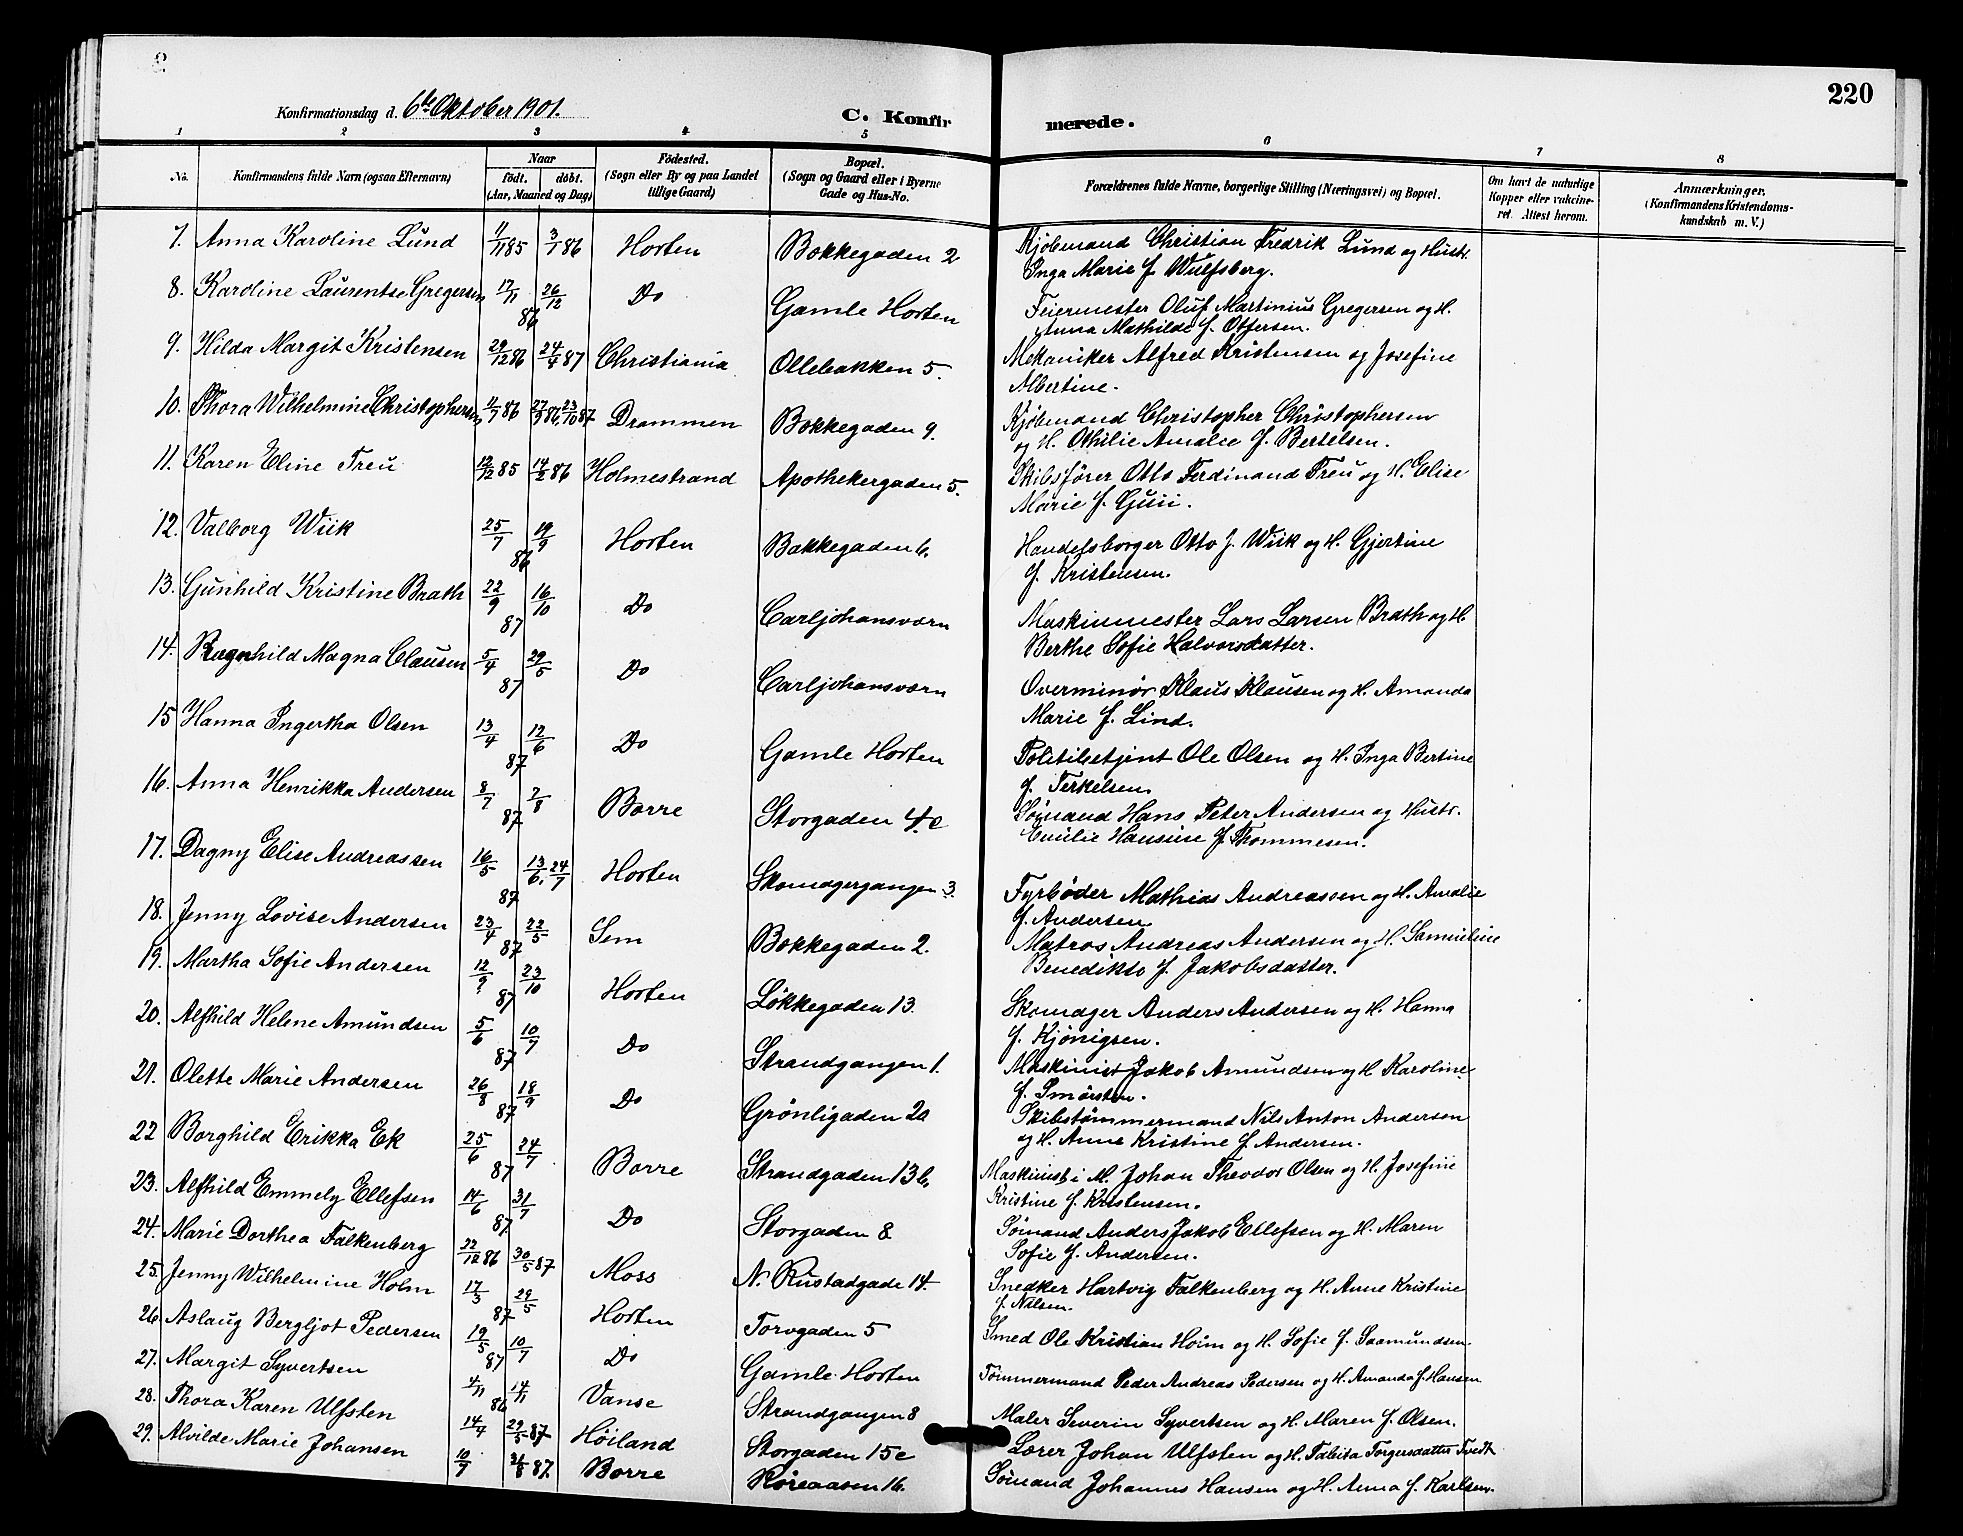 220
Konfirmationsdag d. 6te Oktober 1901.
C. Konfirmerede.
1 2 3 4 5 6 7 8
No.
Konfirmandens fulde Navn (ogsaa Efternavn)
Naar
født. døbt.
(Aar, Maaned og Dag)
Fødested.
(Sogn eller By og paa Landet
tillige Gaard)
Bopæl.
(Sogn og Gaard eller i Byerne
Gade og Hus-No.
Forældrenes fulde Navne, borgerlige Stilling (Næringsvei) og Bopæl.
Om havt de naturlige
Kopper eller vakcine-
ret. Attest herom.
Anmærkninger.
(Konfirmandens Kristendoms-
kundskab m. V.)
7. Anna Karoline Lund 11/11 85 3/1 86 Horten Bakkegaden 2 Kjøbmand Christian Fredrik Lund og Hustr.
Inga Marie f. Wulfsberg.
8. Karoline Laurentse Gregersen 17/11 26/12 86 Do Gamle Horten Feiermester Oluf Martinius Gregersen og H.
Anna Mathilde f. Ottersen.
9. Hilda Margit Kristensen 29/12 86 24/4 87 Christiania Ollebakken 5. Mekaniker Alfred Kristensen og Josefine
Albertine.
10. Thora Wilhelmine Christophersen 11/7 86 27/9 86, 23/10 87 Drammen Bakkegaden 9. Kjøbmand Christopher Christophersen
og H. Othilie Amalie f. Bertelsen.
11. Karen Eline Treu 12/12 85 14/2 86 Holmestrand Apothekergaden 5. Skibsfører Otto Ferdinand Treu og H. Elise
Marie f. Guii.
12. Valborg Wiik 25/7 19/9 86 Horten Bakkegaden 6. Handelsborger Otto J. Wiik og H. Gjertine
f. Kristensen.
13. Gunhild Kristine Brath 22/9 16/10 87 Do Carljohansværn Maskinmester Lars Larsen Brath og H
Berthe Sofie Halvorsdatter.
14. Ragnhild Magna Clausen 5/4 29/5 87 Do Carljohansværn Overminør Klaus Klausen og H. Amanda
Marie f. Lind.
15 Hanna Ingertha Olsen 13/4 12/6 87 Do Gamle Horten Politibetjent Ole Olsen og H. Inga Bertine
f. Terkelsen.
16. Anna Henrikka Andersen 8/7 7/8 87 Borre Storgaden 4.c Sømand Hans Peter Andersen og Hustr.
Emilie Hansine f. Thommesen.
17. Dagny Elise Andreassen 16/5 13/6. 24/7 87 Horten Skomagergangen 3. Fyrbøder Mathias Andreassen og H. Amalie
f. Andersen
18. Jenny Lovise Andersen 23/4 22/5 87 Sem Bakkegaden 2. Matros Andreas Andersen og H. Samueline
Benedikte f. Jakobsdatter.
19. Martha Sofie Andersen 12/9 23/10 87 Horten Løkkegaden 13. Skomager Anders Andersen og H. Hanna
f. Kjønigsen.
20. Alfhild Helene Amundsen 5/6 10/7 87 Do Strandgangen 1. Maskinist Jakob Amundsen og H Karoline
f. Smørsten.
21. Olette Marie Andersen 26/8 18/9 87 Do Grønligaden 2a Skibstømmermand Nils Anton Andersen
og H. Anne Kristine f Andersen.
22 Borghild Erikka Ek 25/6 24/7 87 Borre Strandgaden 13 b. Maskinist i M. Johan Theodor Olsen og H Josefine
Kristine f. Kristensen.
23. Alfhild Emmely Ellefsen 14/6 31/7 87. Do Storgaden 8 Sømand Anders Jakob Ellefsen og H. Maren
Sofie f. Andersen.
24. Marie Dorthea Falkenberg 22/12 86 30/5 87 Moss N. Rustadgade 14. Snedker Hartvig Falkenberg og H. Anne Kristine
f. Nilsen.
25. Jenny Wilhelmine Holm 17/3 29/5 87 Horten Torvgaden 5 Smed Ole Kristian Holm og H. Sofie f. Saamundsen.
26 Aslaug Bergljot Pedersen 19/5 10/7 87 Do Gamle Horten Tømmermand Peder Andreas Pedersen og H. Amanda f. Hansen
27. Margit Syvertsen 4/11 14/11 86 Vanse Strandgangen 8 Maler Severin Syvertsen og H. Maren f. Olsen.
28. Thora Karen Ulfsten 14/4 29/5 87 Høiland Storgaden 15c Lærer Johan Ulfsten og H. Tabita Torgersdatter Tvedt
29. Alvilde Marie Johansen 10/7 21/8 87. Borre Røreaasen 16. Sømand Johannes Hansen og H. Anna f. Karlsen.